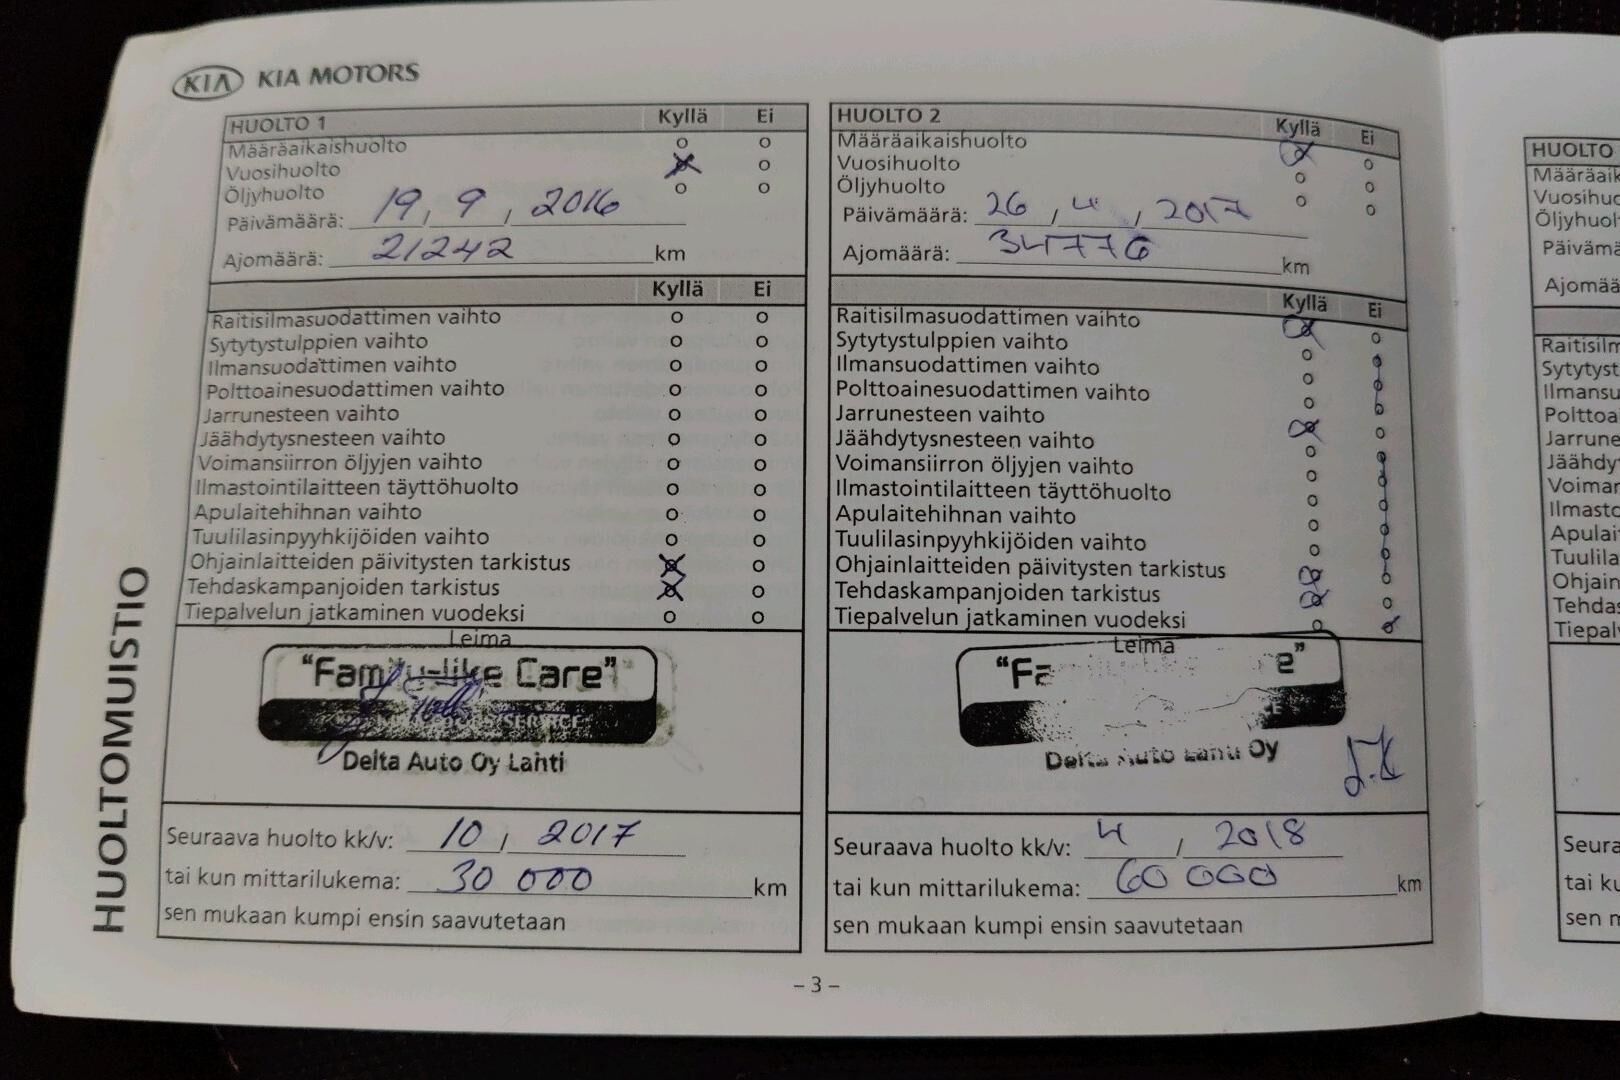 KIA KIA MOTORS
HUOLTOMUISTIO
HUOLTO 1 Kyllä Ei
Määräaikaishuolto o o
Vuosihuolto x o
Öljyhuolto o o
Päivämäärä: 19, 9, 2016
Ajomäärä: 21242 km
Kyllä Ei
Raitisilmasuodattimen vaihto o o
Sytytystulppien vaihto o o
Ilmansuodattimen vaihto o o
Polttoainesuodattimen vaihto o o
Jarrunesteen vaihto o o
Jäähdytysnesteen vaihto o o
Voimansiirron öljyjen vaihto o o
Ilmastointilaitteen täyttöhuolto o o
Apulaitehihnan vaihto o o
Tuulilasinpyyhkijöiden vaihto o o
Ohjainlaitteiden päivitysten tarkistus x o
Tehdaskampanjoiden tarkistus x o
Tiepalvelun jatkaminen vuodeksi o o
Leima
"Family-like Care"
KIA MOTORS SERVICE
Delta Auto Oy Lahti
Seuraava huolto kk/v: 10 / 2017
tai kun mittarilukema: 30 000 km
sen mukaan kumpi ensin saavutetaan
HUOLTO 2 Kyllä Ei
Määräaikaishuolto x o
Vuosihuolto o o
Öljyhuolto o o
Päivämäärä: 26, 4, 2017
Ajomäärä: 34776 km
Kyllä Ei
Raitisilmasuodattimen vaihto x o
Sytytystulppien vaihto o o
Ilmansuodattimen vaihto o o
Polttoainesuodattimen vaihto o o
Jarrunesteen vaihto x o
Jäähdytysnesteen vaihto o o
Voimansiirron öljyjen vaihto o o
Ilmastointilaitteen täyttöhuolto o o
Apulaitehihnan vaihto o o
Tuulilasinpyyhkijöiden vaihto o o
Ohjainlaitteiden päivitysten tarkistus x o
Tehdaskampanjoiden tarkistus x o
Tiepalvelun jatkaminen vuodeksi o x
Leima
"Fa e"
Delta Auto Lahti Oy
Seuraava huolto kk/v: 4 / 2018
tai kun mittarilukema: 60 000 km
sen mukaan kumpi ensin saavutetaan
– 3 –
HUOLTO
Määräaik
Vuosihuo
Öljyhuol
Päivämä
Ajomää
Raitisilm
Sytytyst
Ilmansu
Polttoa
Jarrune
Jäähdy
Voimar
Ilmasto
Apulai
Tuulila
Ohjain
Tehdas
Tiepal
Seura
tai ku
sen m